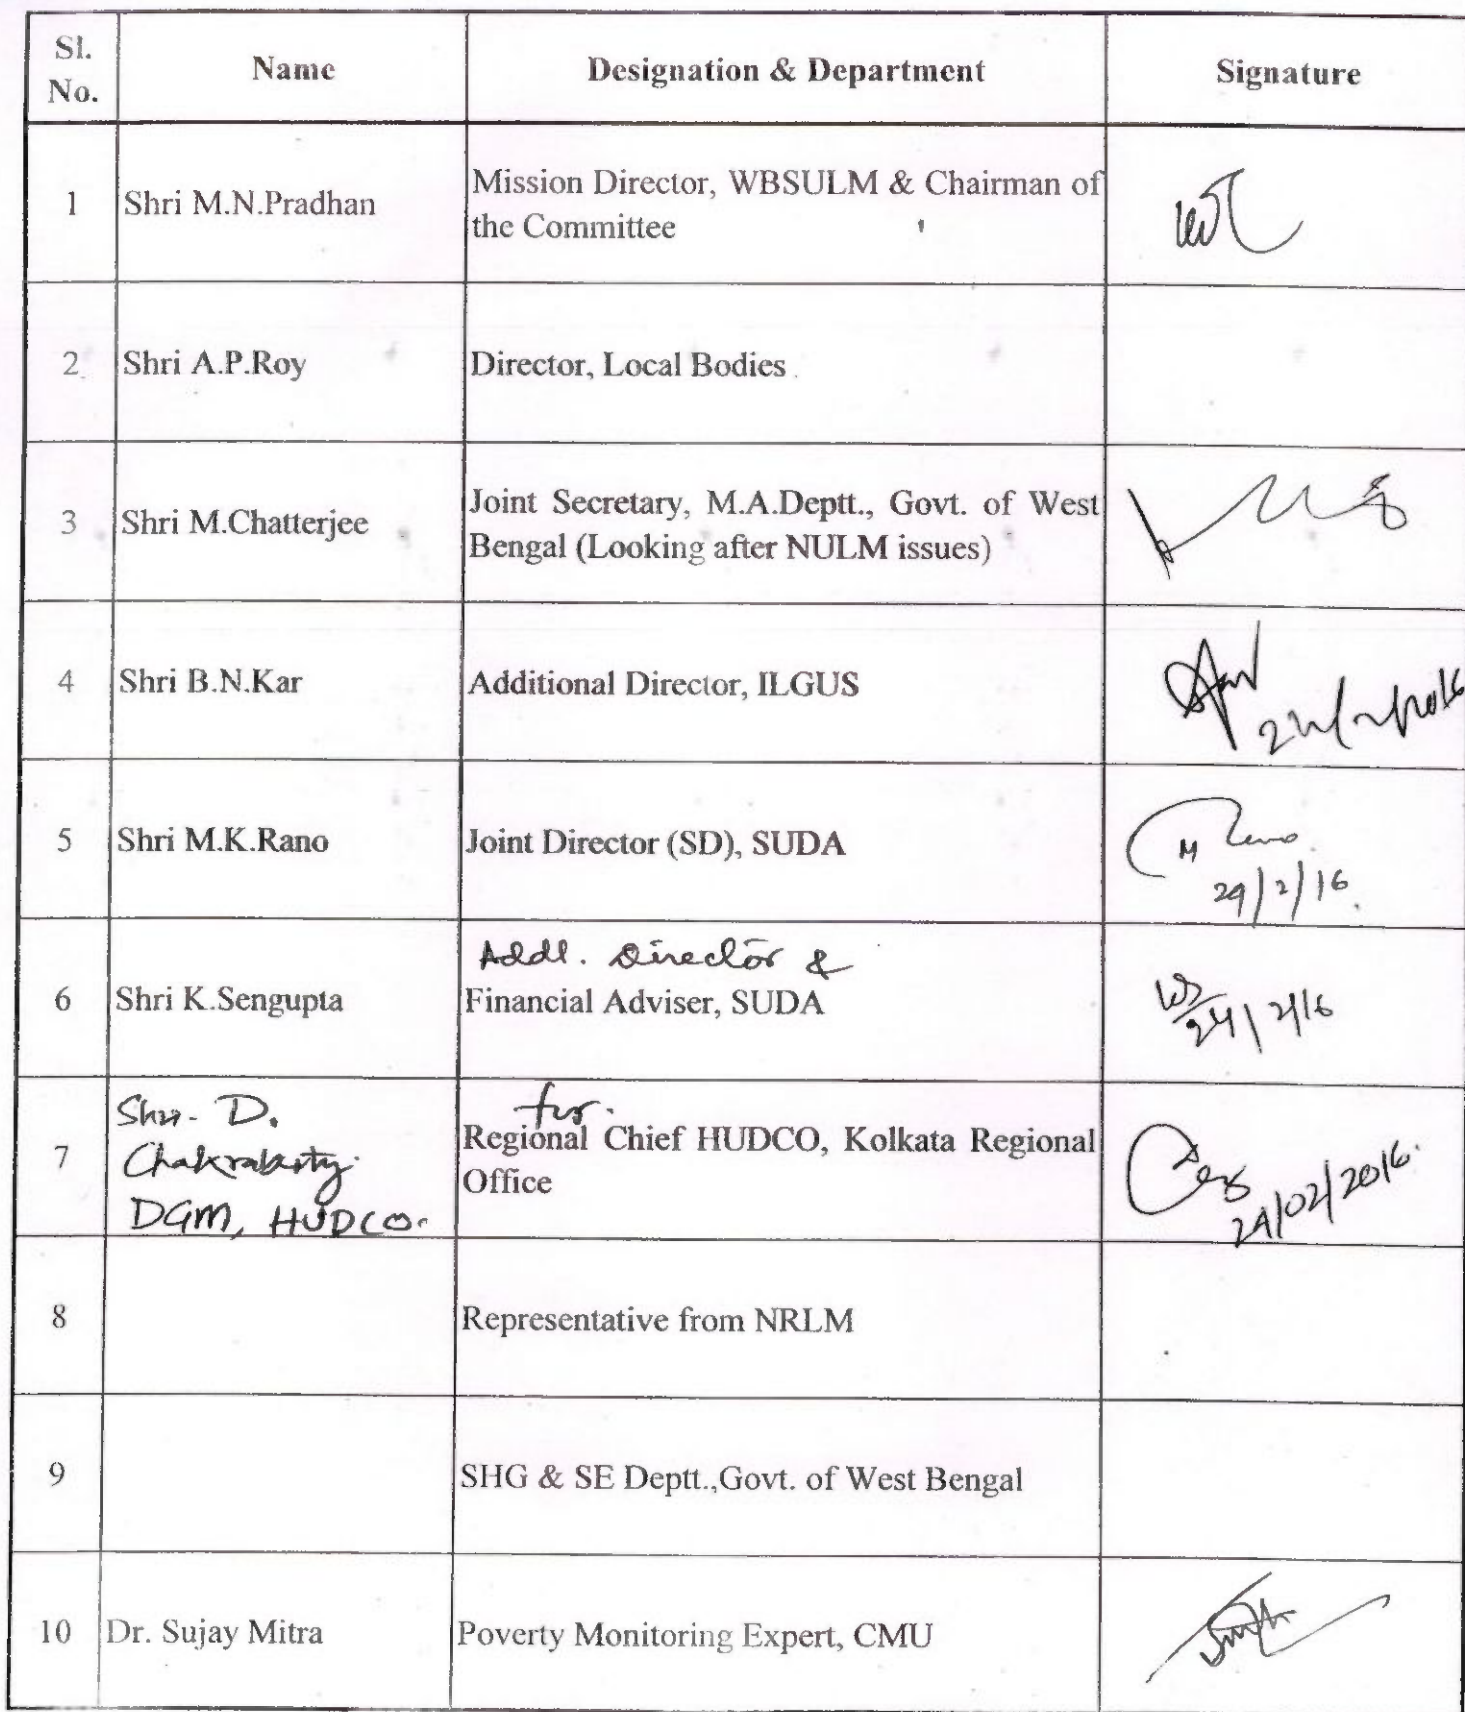 Sl. No. Name Designation & Department Signature
1 Shri M.N.Pradhan Mission Director, WBSULM & Chairman of
the Committee
2 Shri A.P.Roy Director, Local Bodies
3 Shri M.Chatterjee Joint Secretary, M.A.Deptt., Govt. of West
Bengal (Looking after NULM issues)
4 Shri B.N.Kar Additional Director, ILGUS
5 Shri M.K.Rano Joint Director (SD), SUDA
29/2/16
Addl. Director &
6 Shri K.Sengupta Financial Adviser, SUDA
24/2/16
Shri. D. for
7 Chakraborty Regional Chief HUDCO, Kolkata Regional
DGM, HUDCO. Office
24/02/2016.
8 Representative from NRLM
9 SHG & SE Deptt.,Govt. of West Bengal
10 Dr. Sujay Mitra Poverty Monitoring Expert, CMU